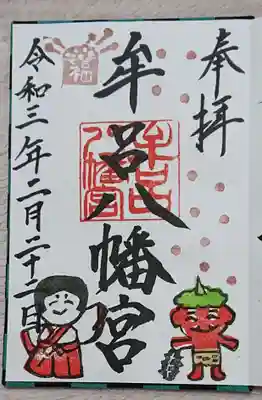 奉拝
牟呂八幡宮
牟呂八幡宮
令和三年二月二十二日